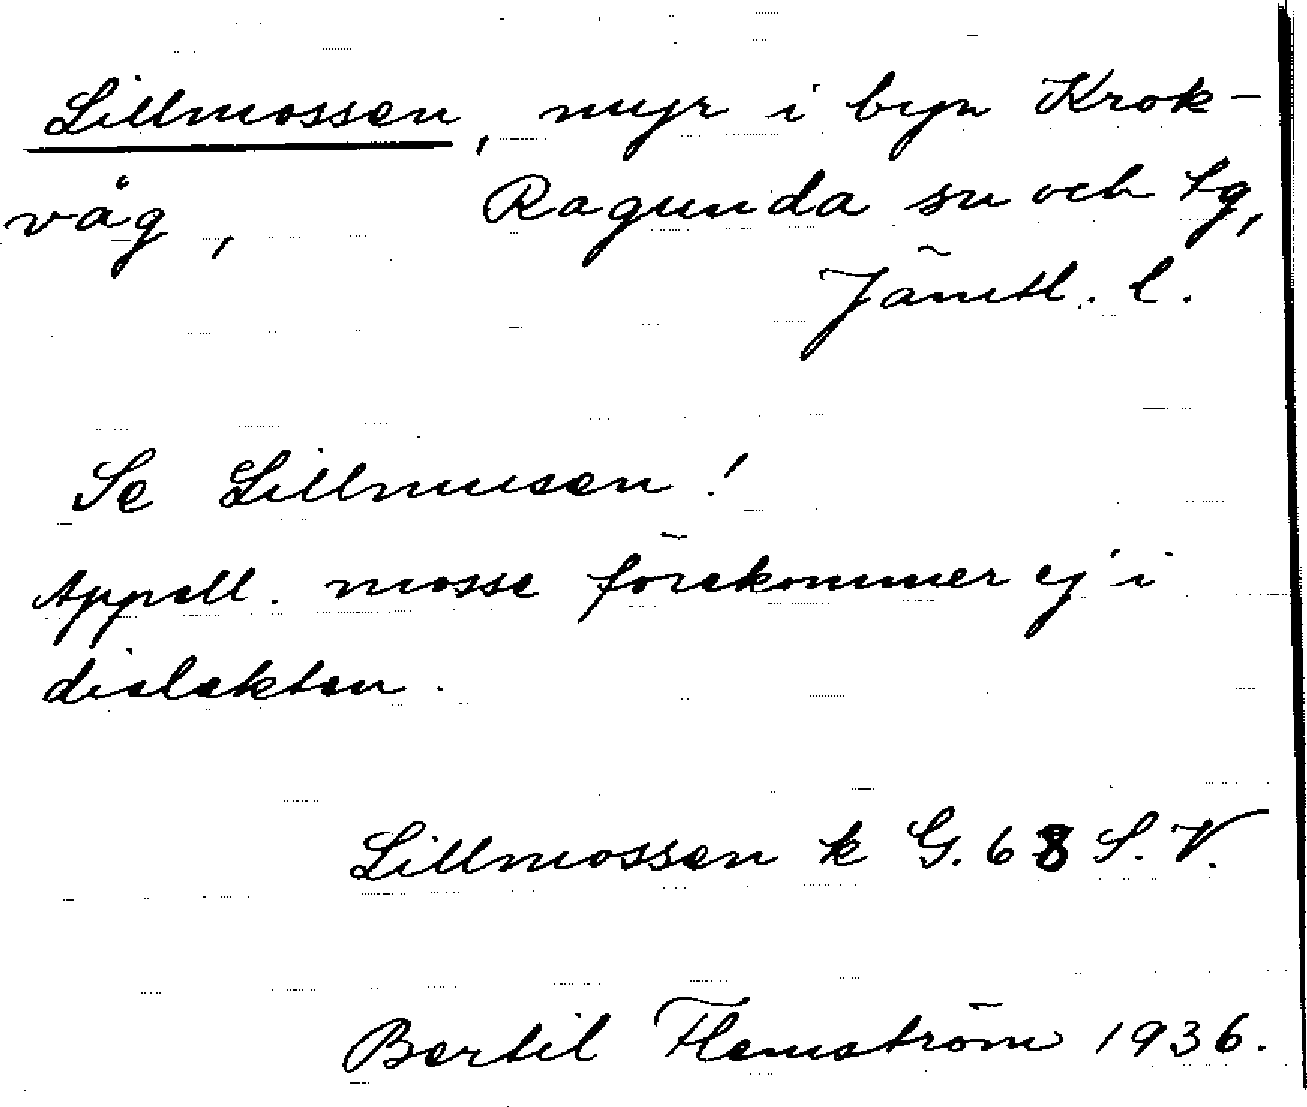 Lillmossen, myr i byn Krok-
våg, Ragunda sn och tg,
Jämtl. l.
Se Lillmusen!
Appell. mosse förekommer ej i
dialekten.
Lillmossen k G. 68 S. V.
Bertil Flemström 1936.